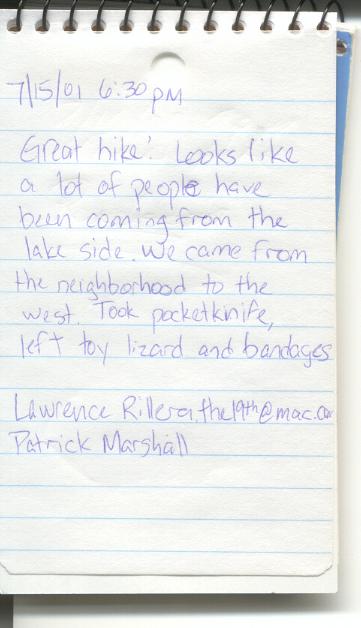 7/15/01 6:30 pm
Great hike! Looks like
a lot of people have
been coming from the
lake side. We came from
the neighborhood to the
west. Took pocketknife,
left toy lizard and bandages
Lawrence Rillera.the19th@mac.com
Patrick Marshall